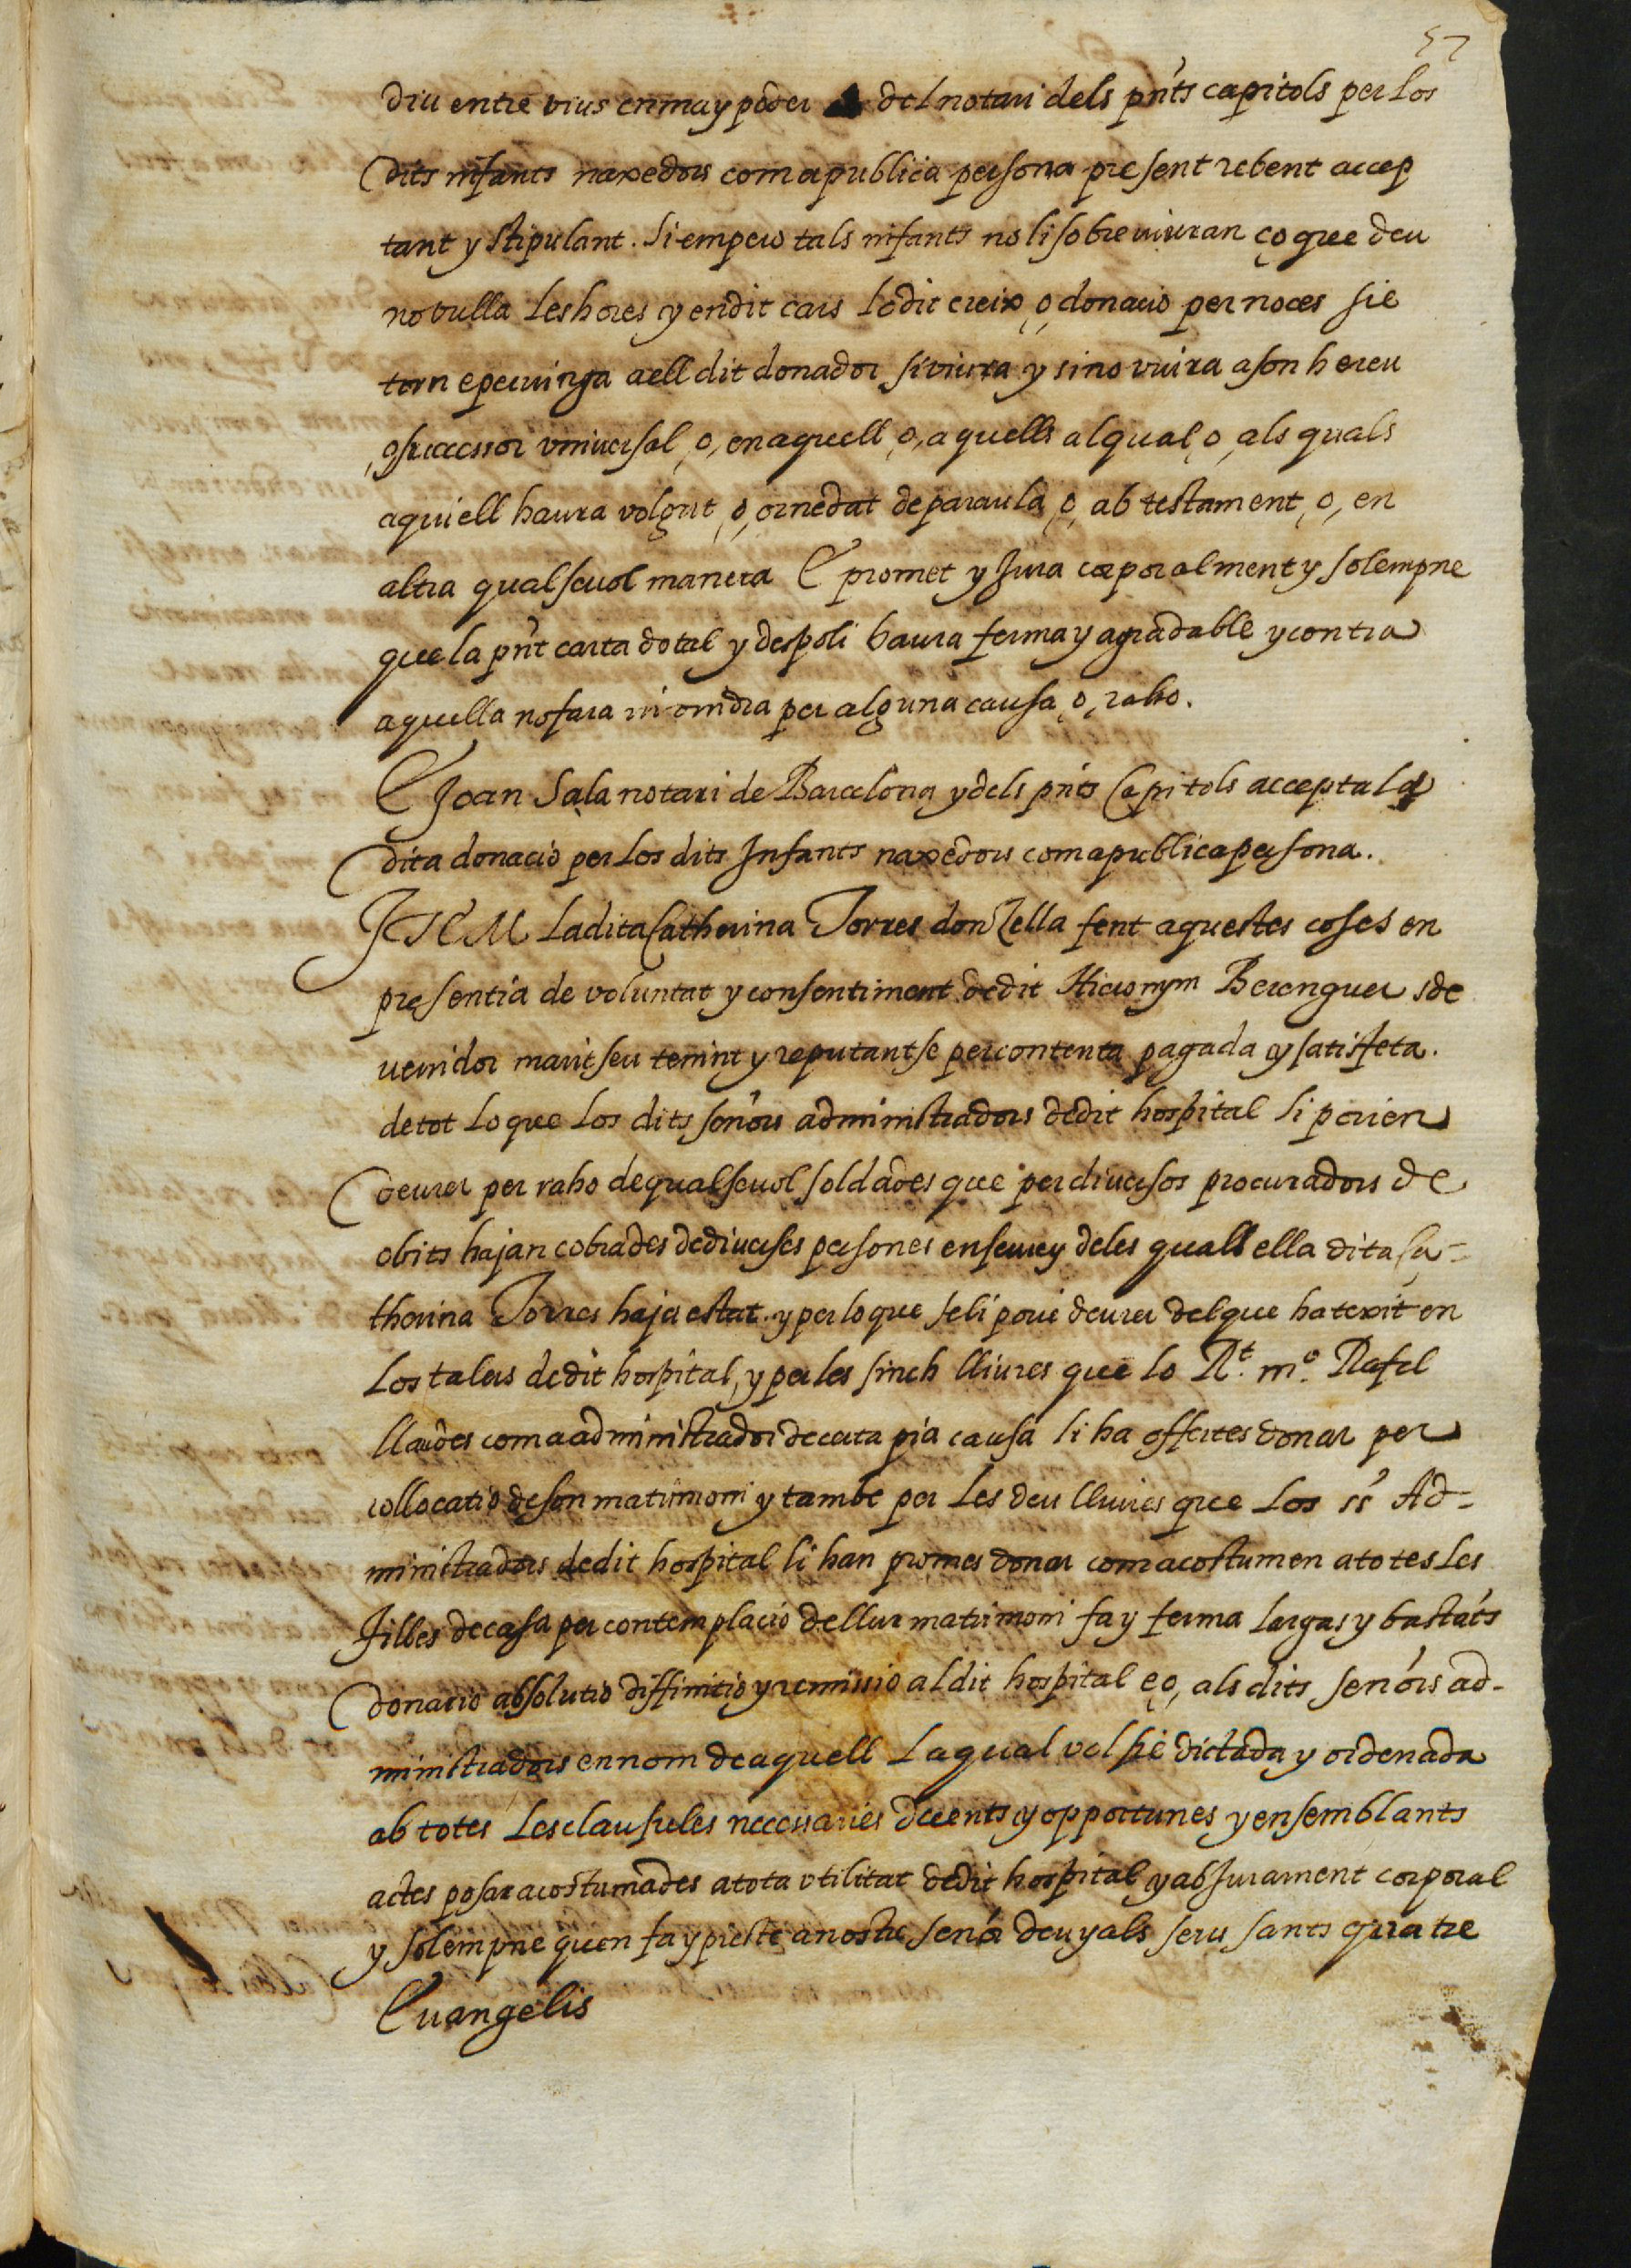 57
diu entre vius en ma y poder del notari dels pnts capitols per los
dits infants naxedors com a publica persona present rebent accep
tant y stipulant. Si empero tals infants no li sobreviuran ço que deu
no vulla les hores y en dit cars lo dit creix ,o, donacio per noces sie
torn e pervinga a ell dit donador si viura y si no viura a son hereu
,o, successor universal ,o, en aquell ,o, aquells al qual ,o, als quals
aqui ell haura volgut ,o, ornedat de paraula ,o, ab testament ,o, en
altra qualsevol manera E promet y Jura corporalment y solempne
que la pnt carta dotal y despoli haura ferma y agradable y contra
aquella no fara ni vindra per alguna causa ,o, raho.
E Joan Sala notari de Barcelona y dels pnts Capitols accepta la
dita donacio per los dits Infants naxedors com a publica persona.
ITEM La dita Catherina Torres donzella fent aquestes coses en
presentia de voluntat y consentiment de dit Hieronym Berenguer sde
venidor marit seu tenint y reputantse per contenta pagada y satisfeta.
de tot lo que los dits senors administradors de dit hospital li porien
deurer per raho de qualsevol soldades que per diversos procuradors de
obits hajan cobrades de diverses persones en servey deles quals ella dita Ca-
therina Torres haja estat. y per lo que seli porie deurer del que ha texit en
los talers de dit hospital, y per les sinch lliures que lo Rt. mo. Rafel
llaudes com a administrador de certa pia causa li ha offertes donar per
collocatio de son matrimoni y tambe per les deu lliures que los ss Ad-
ministradors de dit hospital li han promes donar com acostumen a totes les
filles de casa per contemplacio de llur matrimoni fa y ferma largas y bastats
donatio absolutio diffinitio y remissio al dit hospital e,o, als dits senors ad-
ministradors en nom de aquell La qual vol sie dictada y ordenada
ab totes les clausules necessaries decents y opportunes y en semblants
actes posar acostumades a tota utilitat de dit hospital y ab Jurament corporal
y solempne quen fa y preste a nostre senor deu y als seus sants quatre
Evangelis